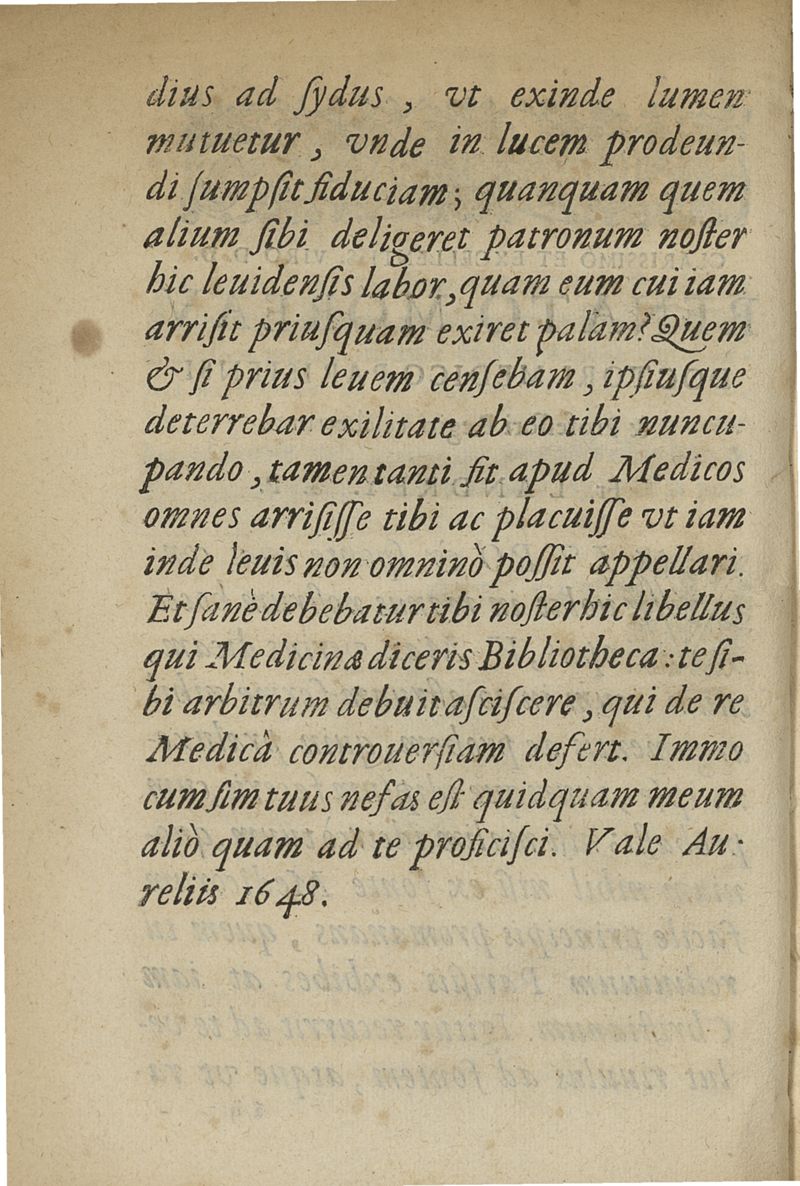 dius ad ſydus , vt exinde lumen
mutuetur , vnde in lucem prodeun-
di ſumpſit fiduciam ; quanquam quem
alium ſibi deligeret patronum noſter
hic leuidenſis labor, quam eum cui iam
arriſit priuſquam exiret palam? Quem
& ſi prius leuem cenſebam , ipſiuſque
deterrebar exilitate ab eo tibi nuncu-
pando , tamen tanti ſit apud Medicos
omnes arriſiſſe tibi ac placuiſſe vt iam
inde leuis non omninò poſſit appellari.
Et ſanè debebatur tibi noſter hic libellus
qui Medicinæ diceris Bibliotheca : te ſi-
bi arbitrum debuit aſciſcere , qui de re
Medicâ controuerſiam defert. Immo
cum ſim tuus nefas eſt quidquam meum
aliò quam ad te proficiſci. Vale Au-
reliis 1648.